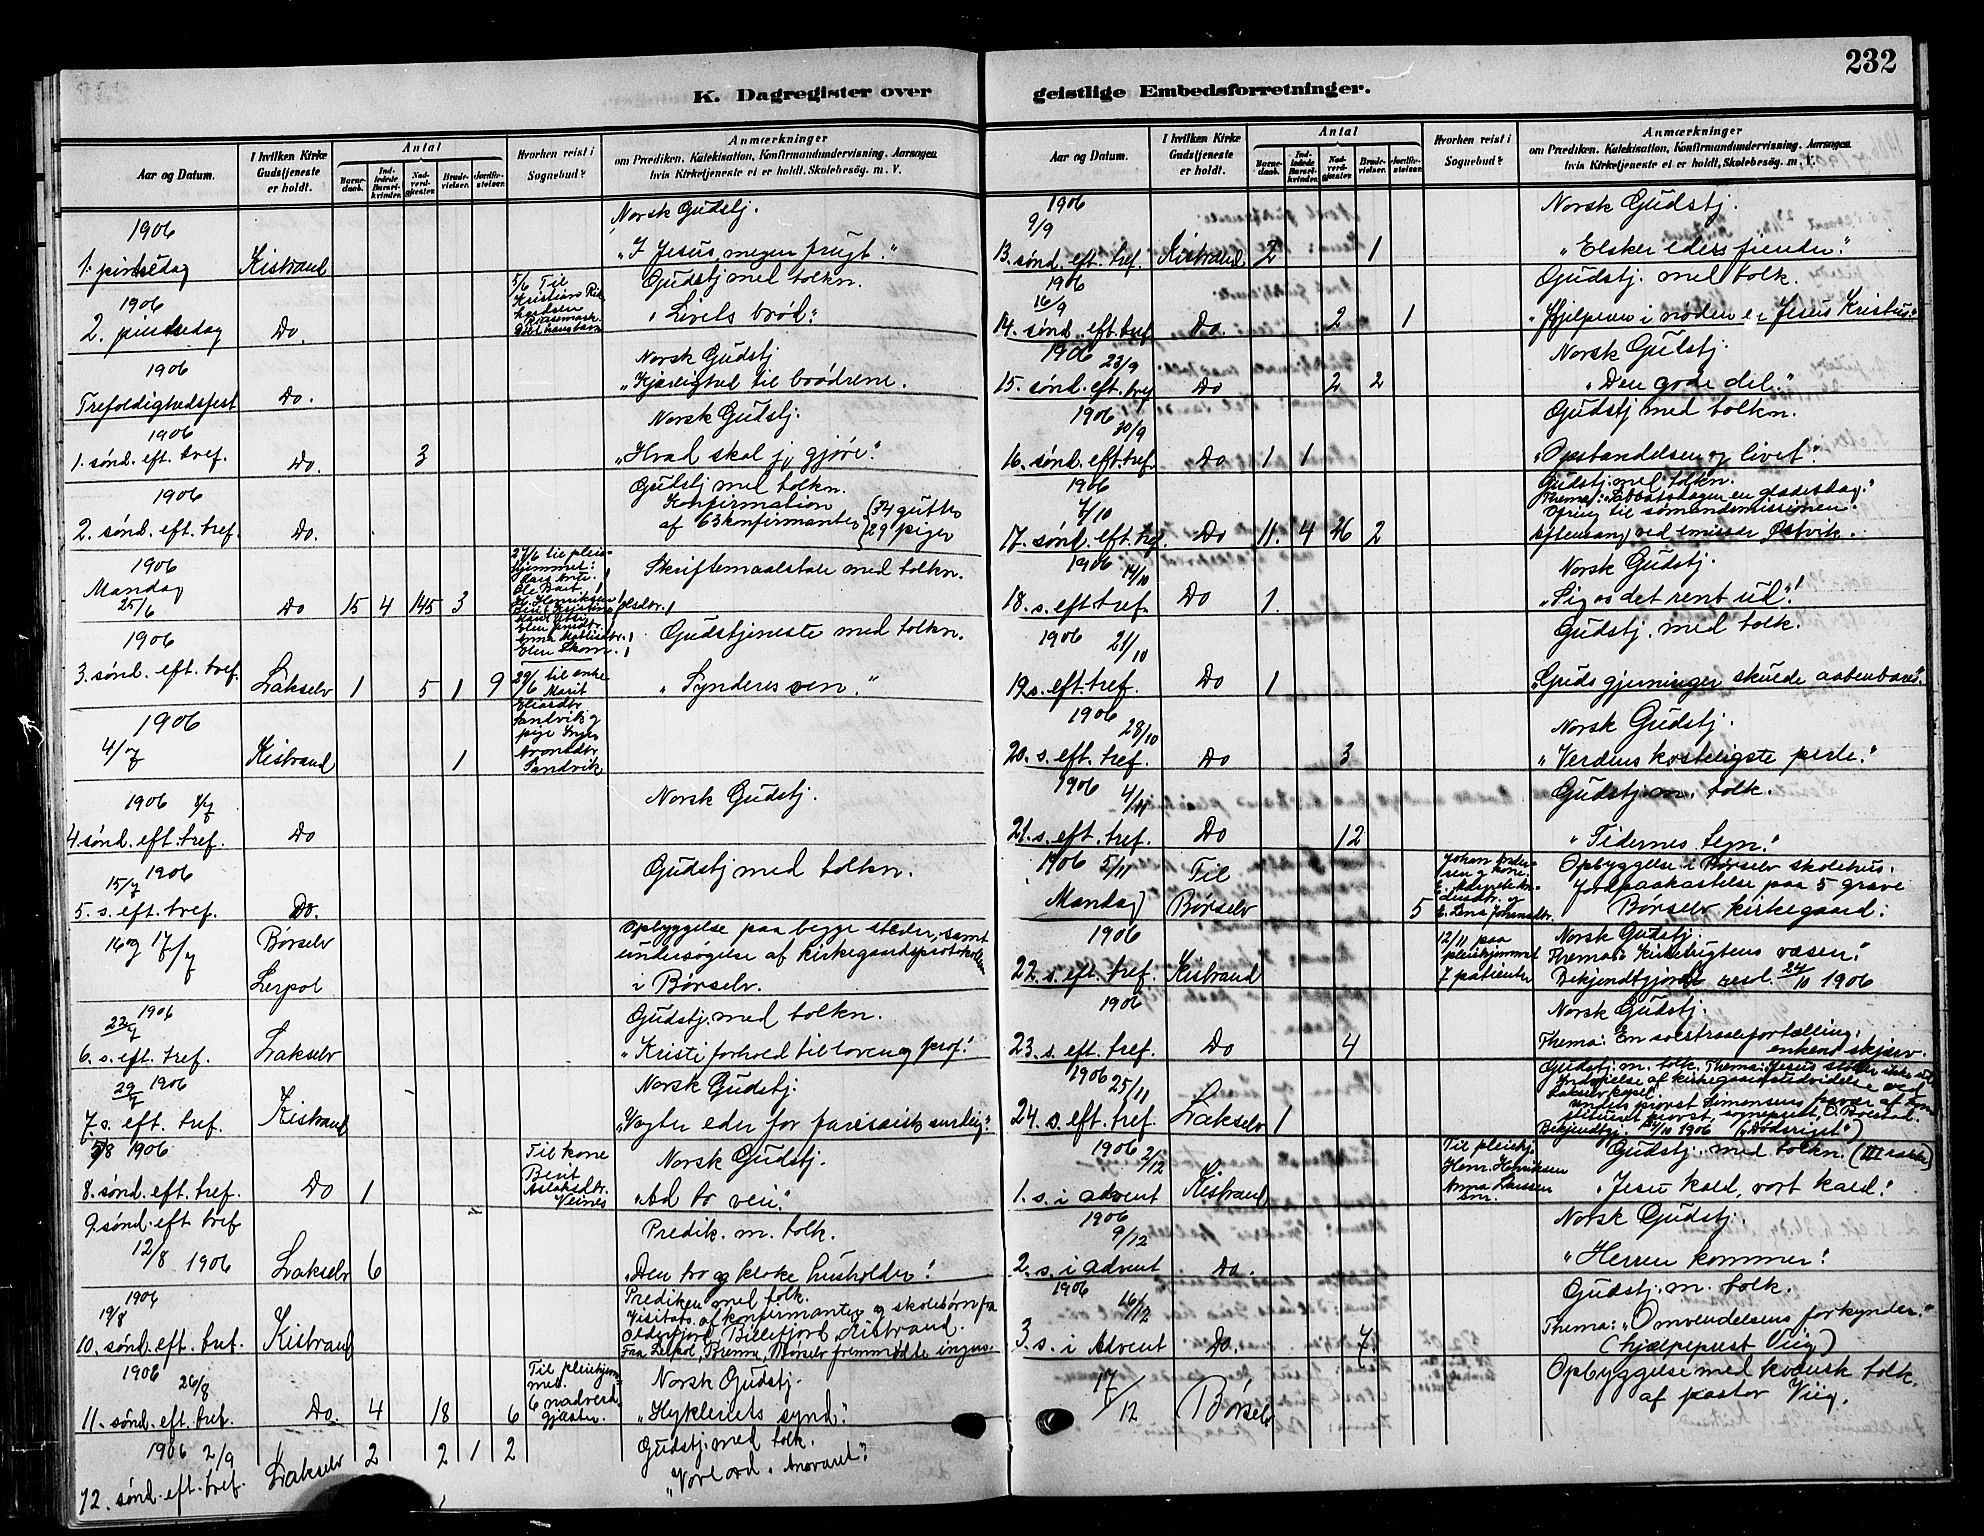 232
K. Dagregister over
geistlige Embedsforretninger.
Aar og Datum.
I hvilken Kirke Gudstjeneste er holdt.
Antal
Barnedaab.
Indledede Barselkvinder.
Nadverdgjæster.
Brudevielser.
Jordfæstelser.
Hvorhen reist i Sognebud?
Anmærkninger
om Prædiken, Katekisation, Konfirmandundervisning, Aarsagen
hvis Kirketjeneste ei er holdt, Skolebesøg. m. V.
1906
1. pintsedag Kistrand
Norsk Gudstj.
"I Jesus megen frugt."
1906
2. pintsedag Do.
5/6 Til
Kristians
Gudstj med tolkn.
"Livets brød."
1906
Trefoldighedsfest Do.
Norsk Gudstj
"Kjærlighed til brødrene.
1906
1. sønd. eft. tref. Do. 3
Norsk Gudstj.
"Hvad skal jeg gjøre."
1906
2. sønd. eft. tref. Do.
Gudstj med tolkn.
Konfirmation
af 63 konfirmanter (34 gutter
(29 piger
1906
Mandag
25/6 Do 15 4 145 3
27/6 til pleiehjemmet:
Skriftemaalstale med tolkn.
1906
3. sønd. eft. tref. Lakselv 1 5 1 9
29/6 til enke
Marit
Eliasdtr
Sandvik og
pige Inger
Aronsdtr.
Sandvik
Gudstjeneste med tolkn.
"Synderes ven."
1906
4/7 Kistrand 1
1906 8/7
4 sønd. eft. tref. Do
Norsk Gudstj.
15/7 1906
5. s. eft. tref. Do.
Gudstj med tolkn.
16 og 17/7 Børselv
Lerpol
Opbyggelse paa begge steder, samt
undersøgelse af kirkegaardsprotokollen
i Børselv.
22/7 1906
6. s. eft. tref. Lakselv
Gudstj. med tolkn.
"Kristi forhold til loven og prof."
29/7 1906
7. s. eft. tref. Kistrand
Norsk Gudstj.
"Vogter eder for farisæisk surdeig"
5/8 1906
8. sønd. eft. tref. Do 1
Til kone
Berit
Aslaksdtr.
Veines
Norsk Gudstj.
"Ad to veie."
9. sønd. eft tref
12/8 1906 Lakselv 6
Predik. m. tolk.
"Den tro og kloke husholder."
1906
19/8
10. sønd. eft. tref. Kistrand
Prediken med tolk.
Visitats af konfirmanter og skolebørn fra
Olderfjord, Billefjord, Kistrand.
Fra Lerpol, Brenna, Børselv fremmødte ingen.
1906
26/8
11. sønd. eft. tref. Do. 4 18 6
Til pleiehjemmet.
6 nadverdgjæster.
Norsk Gudstj.
"Hykleriets synd."
1906 2/9
12. sønd. eft. tref. Lakselv 2 2 1 2
Gudstj. med tolk.
"Vort ord. ansvaret."
Aar og Datum.
I hvilken Kirke Gudstjeneste er holdt.
Antal
Barnedaab.
Indledede Barselkvinder.
Nadverdgjæster.
Brudevielser.
Jordfæstelser.
Hvorhen reist i Sognebud?
Anmærkninger
om Prædiken, Katekisation, Konfirmandundervisning, Aarsagen
hvis Kirketjeneste ei er holdt, Skolebesøg. m. V.
1906
9/9
13. sønd. eft. tref. Kistrand 2 1
Norsk Gudstj.
"Elsker eders fiender."
1906
16/9
14. sønd. eft. tref Do. 2 1
Gudstj. med tolk.
"Hjelperen i nøden er Jesus Kristus."
1906 23/9
15. sønd. eft. tref Do 2 2
Norsk Gudstj.
"Den gode del."
1906
30/9
16. sønd. eft. tref. Do 1 1
Gudstj med tolkn.
"Opstandelsen og livet."
1906
7/10
17. sønd. eft. tref. Do 11. 4 26 2
Gudstj. med tolkn.
Thema: "Sabbatsdagen en glædesdag."
Ofring til sømandsmissionen.
Aftensang ved emissær Østvik.
1906 14/10
18. s. eft tref. Do 1.
Norsk Gudstj.
"Sig os det rent ud"!
1906 21/10
19. s. eft. tref. Do 1
Gudstj. med tolk.
"Guds gjerninger skulde aabenbares".
1906
28/10
20. s. eft. tref. Do 3
Norsk Gudstj.
"Verdens kosteligste perle."
1906 4/11
21. s. eft. tref. Do 12
Gudstj. m. tolk.
"Tidernes tegn."
1906 5/11
Mandag
Til
Børselv 5
Johan Andersen og kone
Opbyggelse i Børselv skolehus.
Jordpaakastelse paa 5 grave
Børselv kirkegaard.
1906
22. s. eft. tref. Kistrand
12/11 paa
pleiehjemmet
7 patienter
Norsk Gudstj.
Thema: Kirketugtens væsen."
Bekjendtgjordt resol. 24/10 1906
1906
23. s. eft. tref. Do 4
Norsk Gudstj.
Thema: En solstraalefortælling:
enkens skjærv.
1906
25/11
24. s. eft. tref. Lakselv 1
Gudstj. m. tolk. Thema: Jesus støder ikke ud.
Indvielse af kirkegaardsudvidelse ved
Lakselv kapel.
under provst Simonsens
provst, sogneprest O. Bolstad.
Bekjendtgj. 24/10 1906 ("Dødsriget")
1906 2/12
1. s. i advent Kistrand
Til pleiehj.
Henr. Henriksen
Anna Larssen
Gudstj. med tolkn. (III række)
"Jesu kald, vort kald."
1906
9/12
2. s. i advent Do.
Norsk Gudstj.
"Herren kommer"!
1906
16/12
3. s. i Advent Do. 7.
Gudstj. m. tolk.
Thema: "Omvendelsens forkynder."
(hjælpeprest Viig)
17/12 Børselv
Opbyggelse med kvensk tolk.
af pastor Viig.